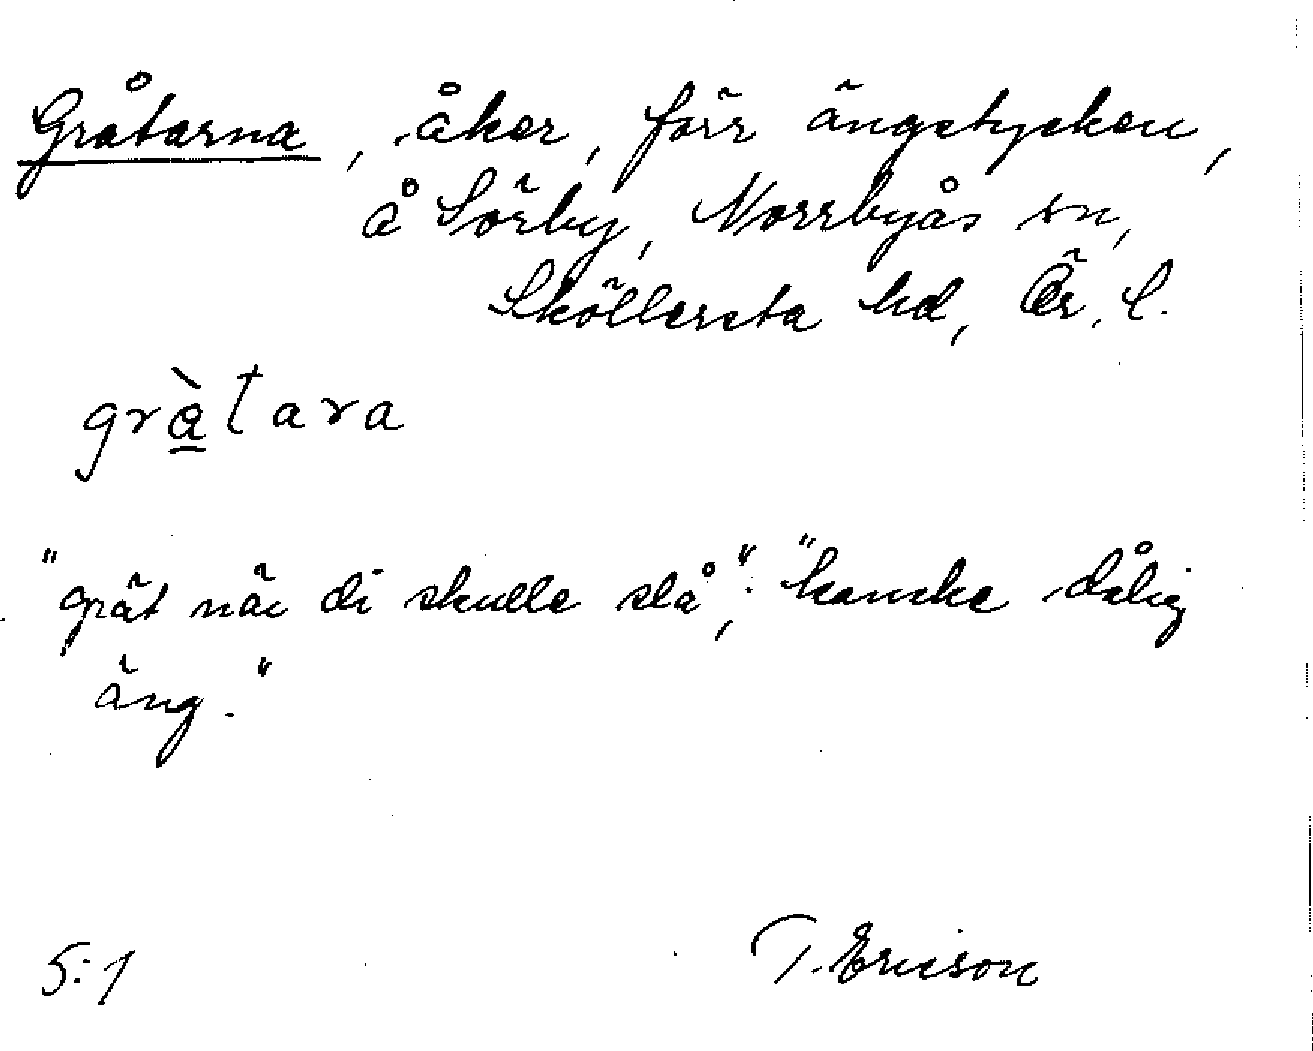 Gråtarna, åker, förr ängstycken,
å Sörby, Norrbyås sn,
Sköllersta hd, Ör. l.
grà̲tara
"grät när di skulle slå", "kanske dålig
äng."
5:1
T. Ericson